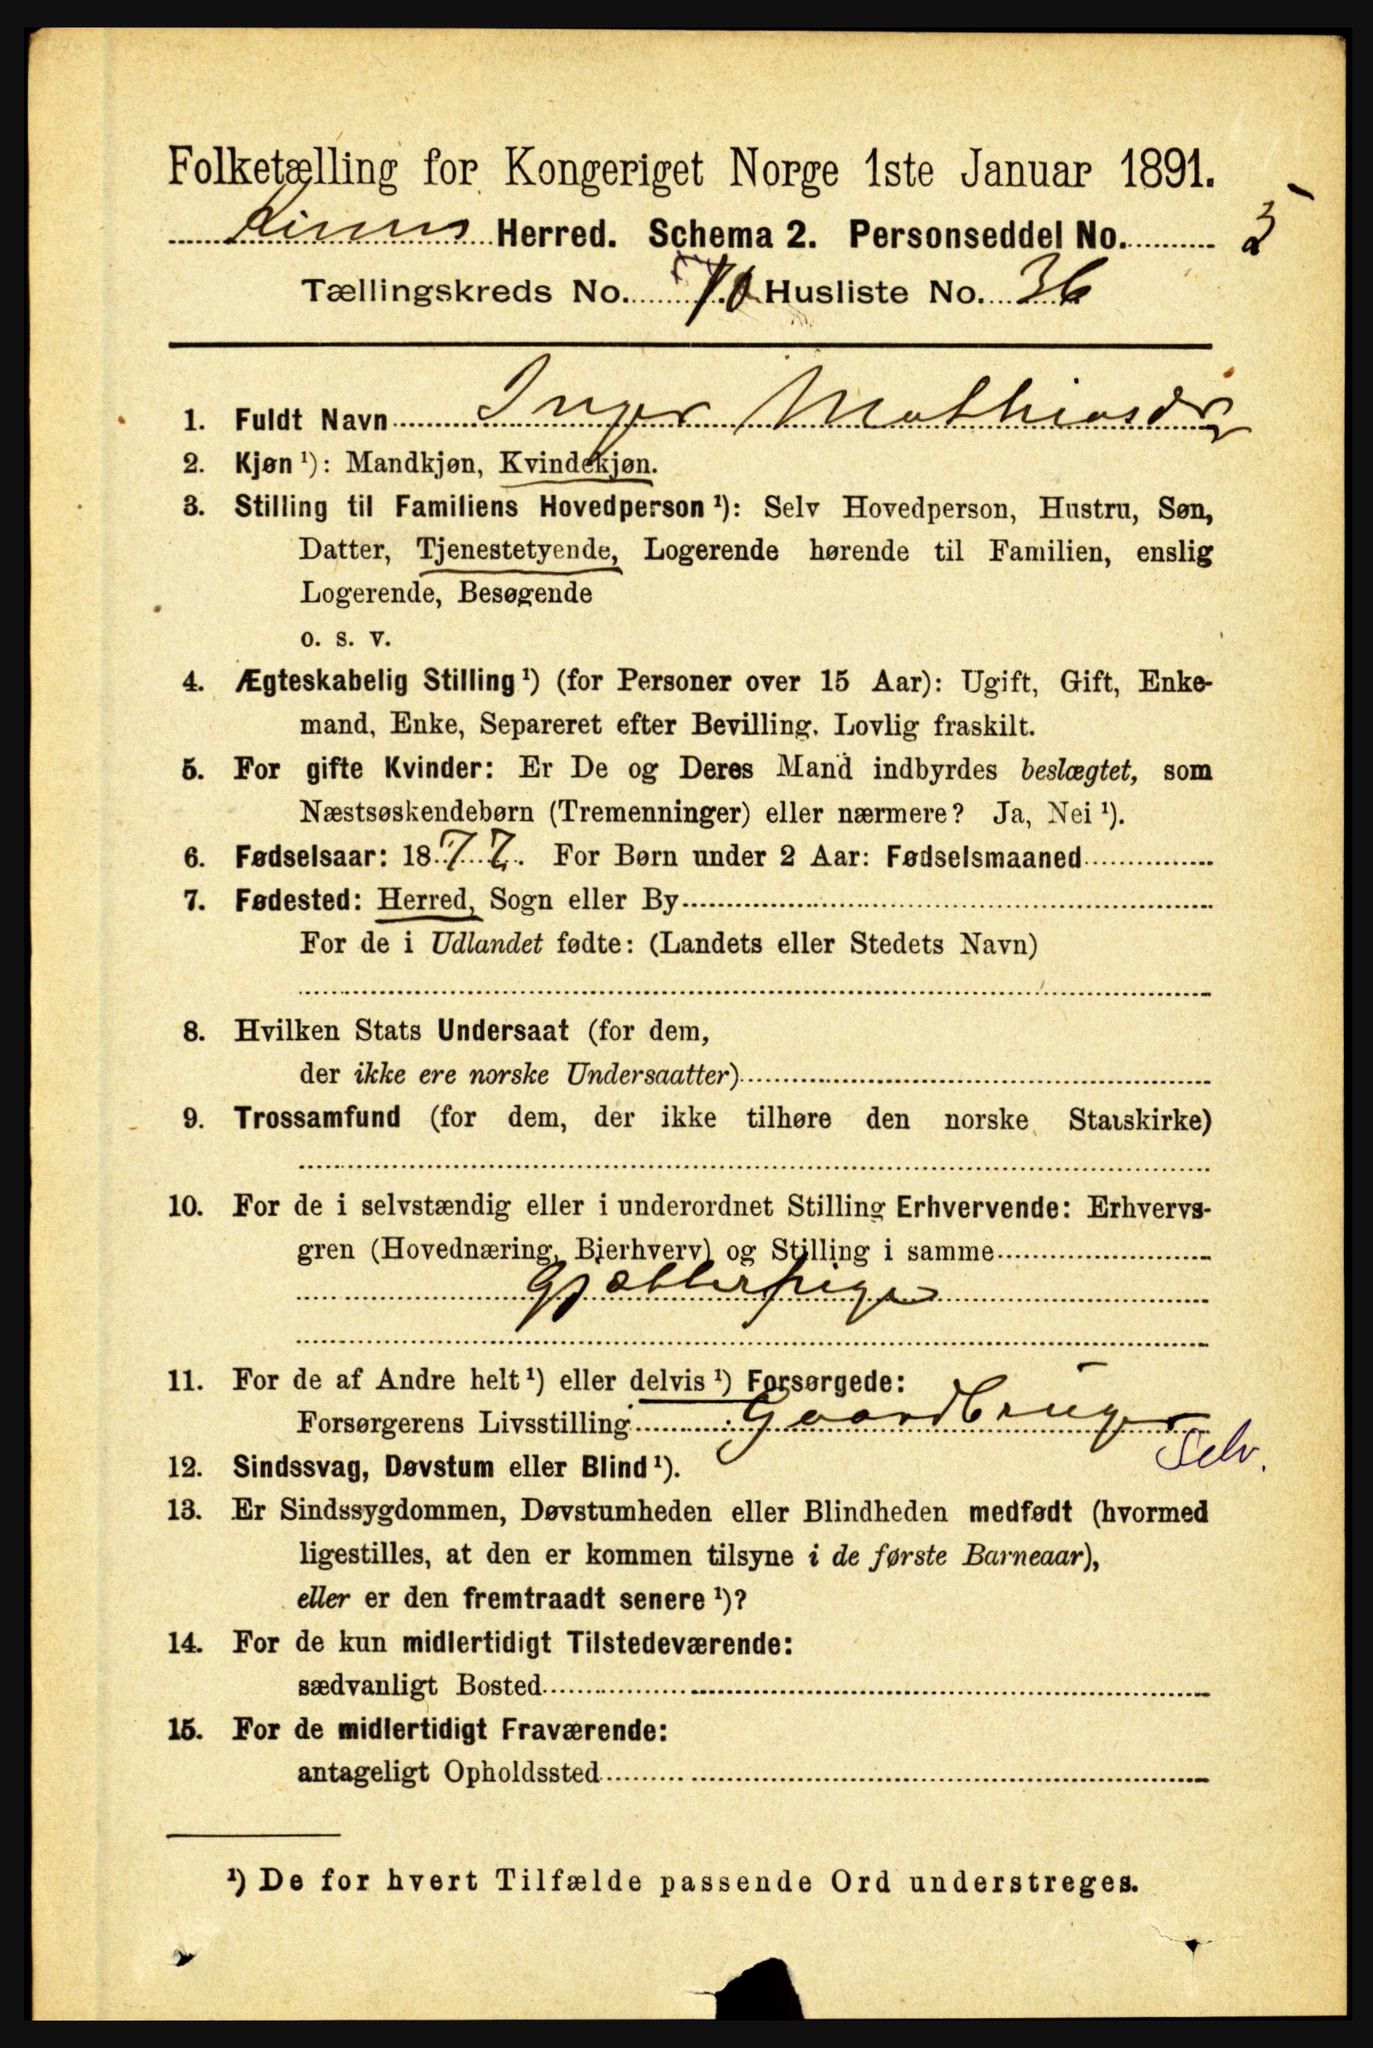 Folketælling for Kongeriget Norge 1ste Januar 1891.
Kinns Herred. Schema 2. Personseddel No. 5
Tællingskreds No. 10 Husliste No. 36
1. Fuldt Navn Inger Mathiasdr
2. Kjøn ¹): Mandkjøn, Kvindekjøn.
3. Stilling til Familiens Hovedperson ¹): Selv Hovedperson, Hustru, Søn,
Datter, Tjenestetyende, Logerende hørende til Familien, enslig
Logerende, Besøgende
o. s. v.
4. Ægteskabelig Stilling ¹) (for Personer over 15 Aar): Ugift, Gift, Enke-
mand, Enke, Separeret efter Bevilling. Lovlig fraskilt.
5. For gifte Kvinder: Er De og Deres Mand indbyrdes beslægtet, som
Næstsøskendebørn (Tremenninger) eller nærmere? Ja, Nei ¹).
6. Fødselsaar: 1877. For Børn under 2 Aar: Fødselsmaaned
7. Fødested: Herred, Sogn eller By
For de i Udlandet fødte: (Landets eller Stedets Navn)
8. Hvilken Stats Undersaat (for dem,
der ikke ere norske Undersaatter)
9. Trossamfund (for dem, der ikke tilhøre den norske Statskirke)
10. For de i selvstændig eller i underordnet Stilling Erhvervende: Erhvervs-
gren (Hovednæring, Bierhverv) og Stilling i samme
Gjætterpige
11. For de af Andre helt ¹) eller delvis ¹) Forsørgede:
Forsørgerens Livsstilling Gaardbruger
Selv.
12. Sindssvag, Døvstum eller Blind ¹).
13. Er Sindssygdommen, Døvstumheden eller Blindheden medfødt (hvormed
ligestilles, at den er kommen tilsyne i de første Barneaar),
eller er den fremtraadt senere ¹)?
14. For de kun midlertidigt Tilstedeværende:
sædvanligt Bosted
15. For de midlertidigt Fraværende:
antageligt Opholdssted
¹) De for hvert Tilfælde passende Ord understreges.